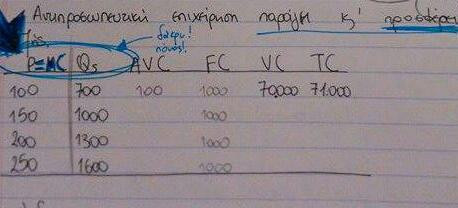 Αντιπροσωπευτική επιχείρηση παράγει κ' προσφέρει
P=MC Qs AVC FC VC TC
100 700 100 1000 70.000 71.000
150 1000 1000
200 1300 1000
250 1600 1000